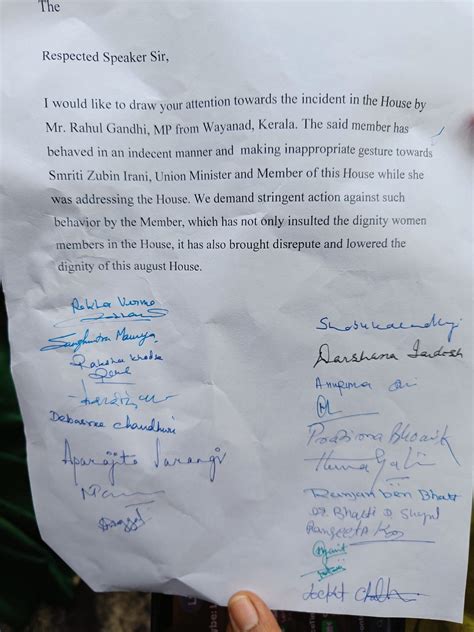 The
Respected Speaker Sir,
I would like to draw your attention towards the incident in the House by
Mr. Rahul Gandhi, MP from Wayanad, Kerala. The said member has
behaved in an indecent manner and making inappropriate gesture towards
Smriti Zubin Irani, Union Minister and Member of this House while she
was addressing the House. We demand stringent action against such
behavior by the Member, which has not only insulted the dignity women
members in the House, it has also brought disrepute and lowered the
dignity of this august House.
Rekha Verma
Sanghmitra Maurya
Raksha Khadse
Debasree Chaudhuri
Aparajita Sarangi
Darshana Jardosh
Pratima Bhoumik
Ranjanben Bhatt
Dr Bharti
Locket